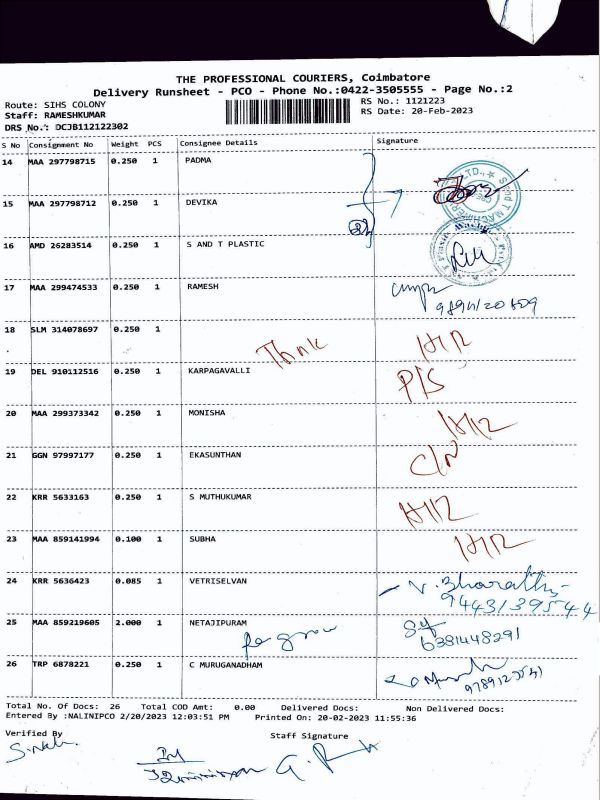 THE PROFESSIONAL COURIERS, Coimbatore
Delivery Runsheet - PCO - Phone No.:0422-3505555 - Page No.:2
Route: SIHS COLONY
RS No.: 1121223
Staff: RAMESHKUMAR
RS Date: 20-Feb-2023
DRS No.: DCJB112122302
S No Consignment No Weight PCS Consignee Details Signature
14 MAA 297798715 0.250 1 PADMA
15 MAA 297798712 0.250 1 DEVIKA
16 AMD 26283514 0.250 1 S AND T PLASTIC
17 MAA 299474533 0.250 1 RAMESH
18 SLM 314078697 0.250 1
19 DEL 910112516 0.250 1 KARPAGAVALLI P/S
20 MAA 299373342 0.250 1 MONISHA
21 GGN 97997177 0.250 1 EKASUNTHAN C/N
22 KRR 5633163 0.250 1 S MUTHUKUMAR
23 MAA 859141994 0.100 1 SUBHA
24 KRR 5636423 0.085 1 VETRISELVAN V. Bharathi
9443139544
25 MAA 859219605 2.000 1 NETAJIPURAM
6381448291
26 TRP 6878221 0.250 1 C MURUGANADHAM
Total No. Of Docs: 26 Total COD Amt: 0.00 Delivered Docs: Non Delivered Docs:
Entered By :NALINIPCO 2/20/2023 12:03:51 PM Printed On: 20-02-2023 11:55:36
Verified By Staff Signature